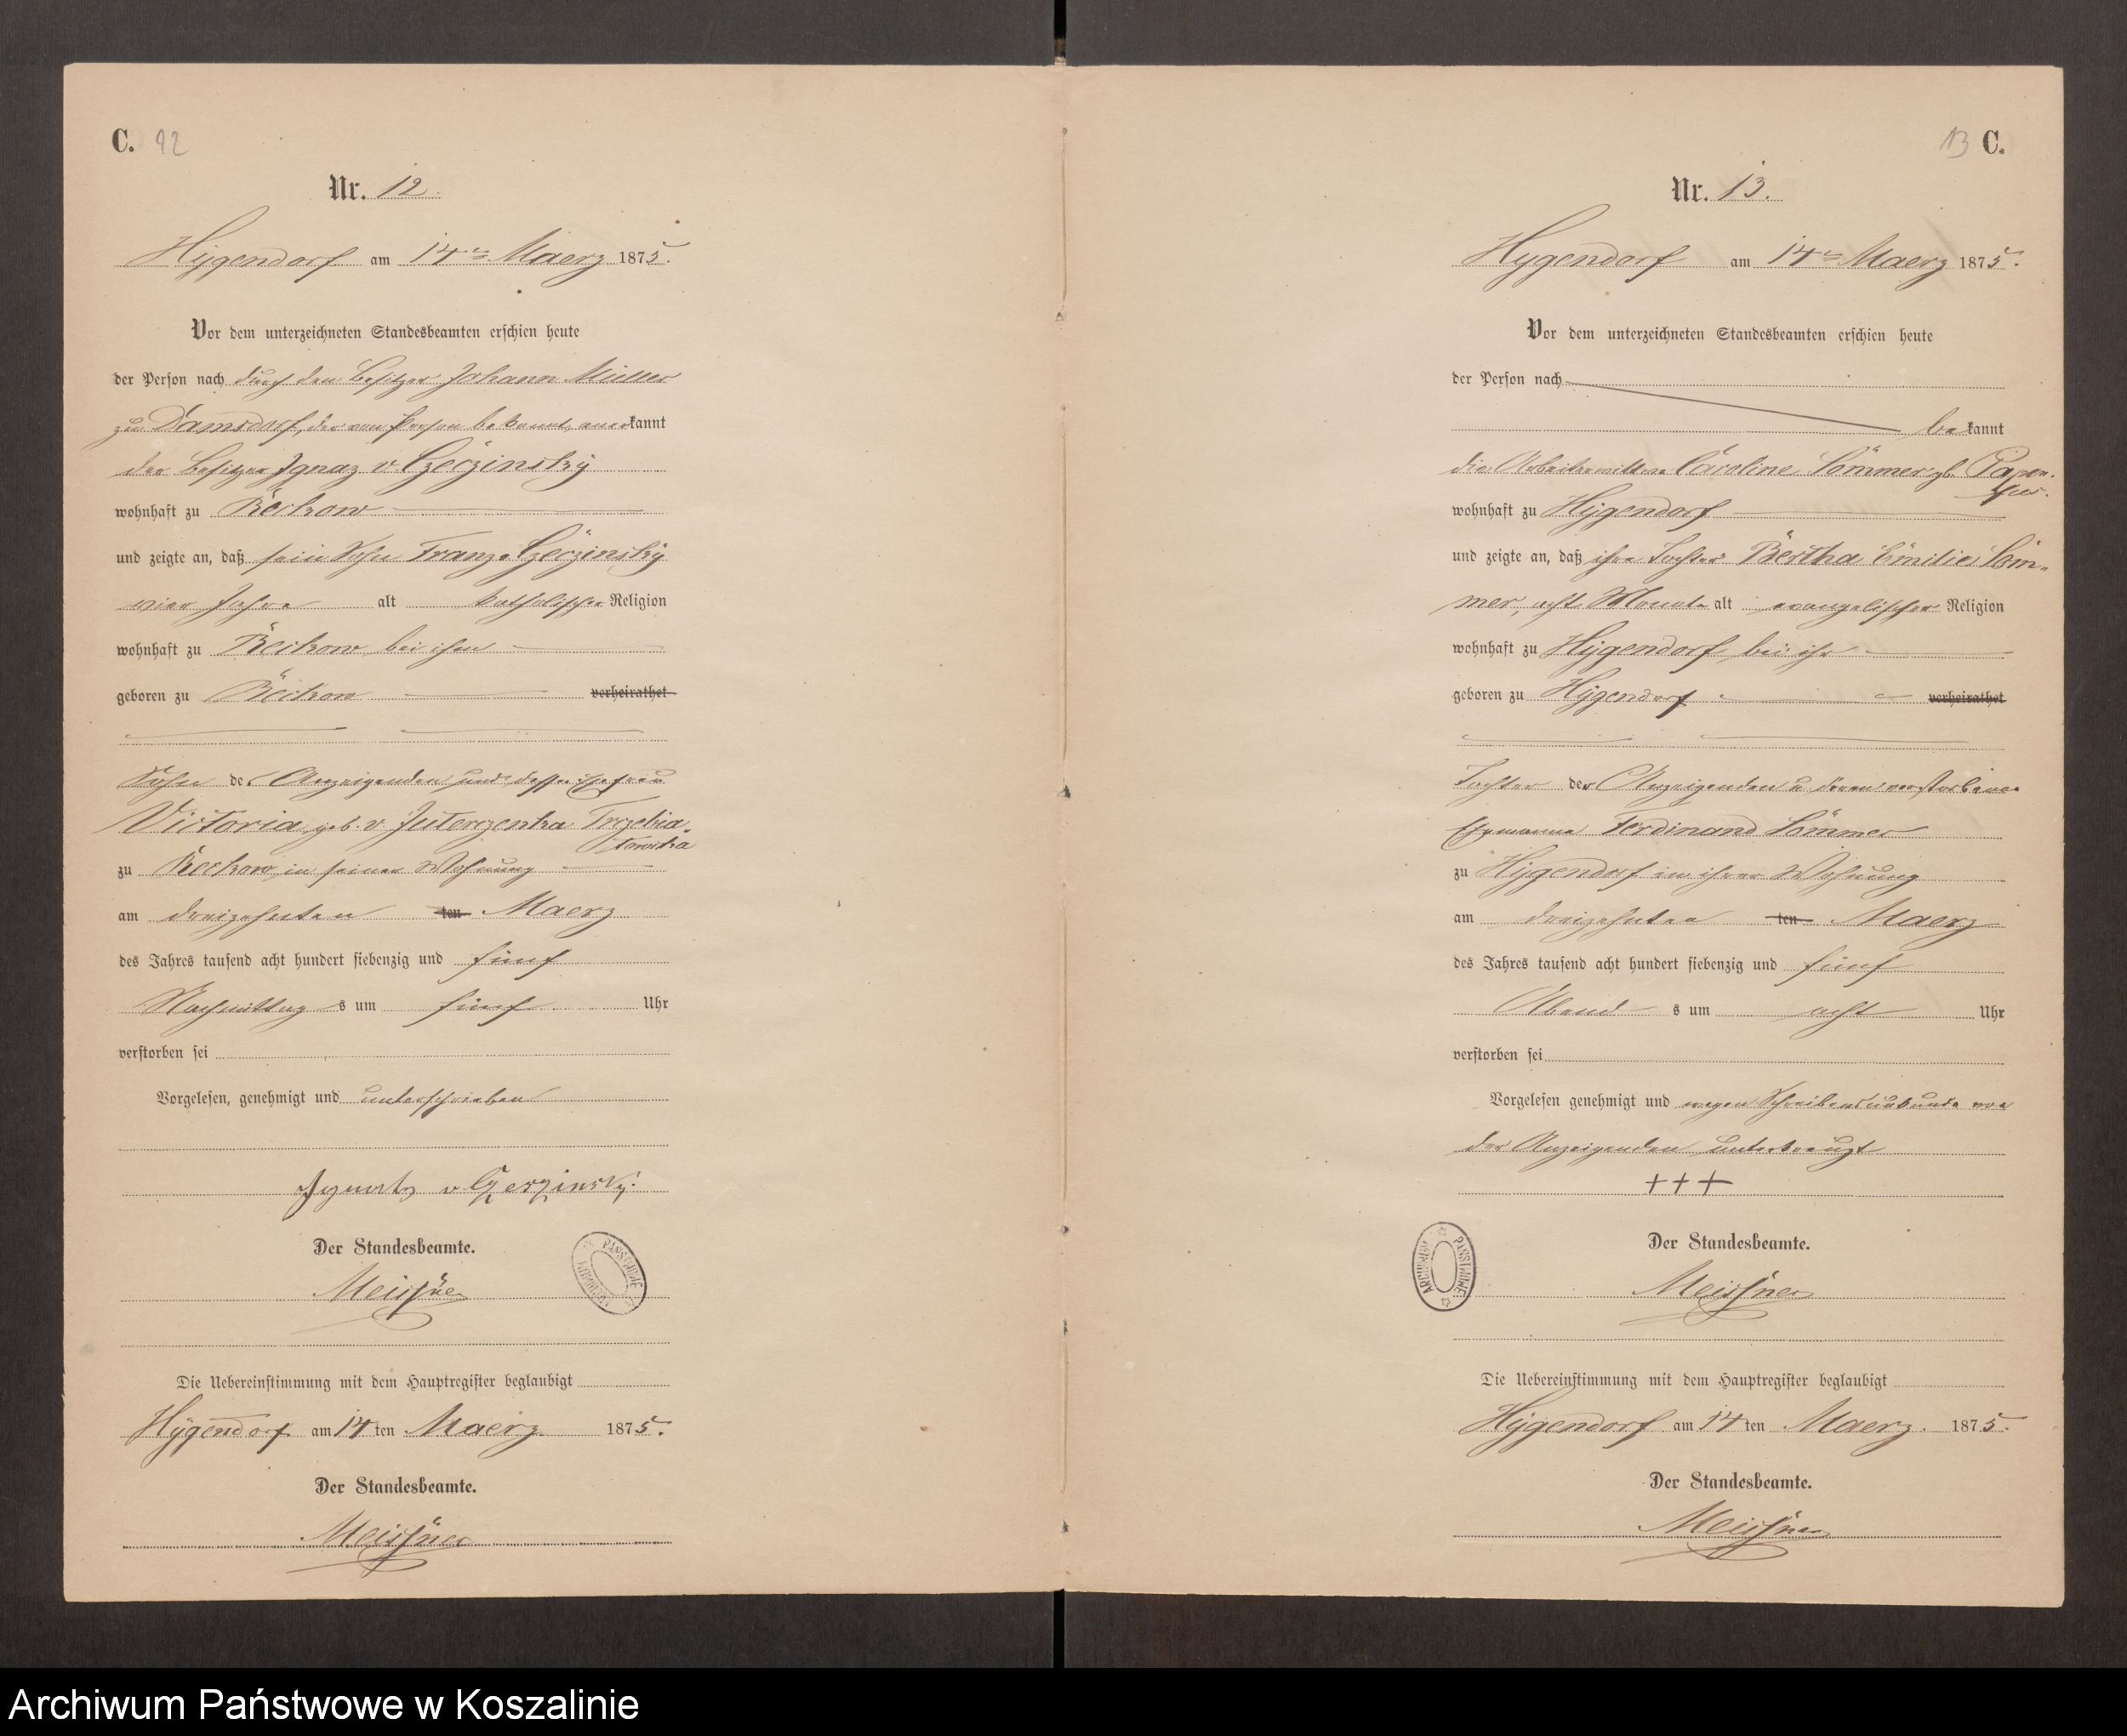 C. 12
Nr. 12.
Hygendorf am 14ten Maerz 1875.
Vor dem unterzeichneten Standesbeamten erschien heute
der Person nach durch den Besitzer Johann Müller
zu Damsdorf, der von Person bekannt, anerkannt
der Besitzer Ignaz v Czerzinsky
wohnhaft zu Reckow
und zeigte an, daß sein Sohn Franz v Czerzinsky
vier Jahre alt katholischer Religion
wohnhaft zu Reckow bei ihm
geboren zu Reckow verheirathet
Sohn des Anzeigenden und dessen Ehefrau
Victoria geb. v Juterzenka Trzebia-
towska
zu Reckow in seiner Wohnung
am dreizehnten ten Maerz
des Jahres tausend acht hundert siebenzig und fünf
Nachmittag s um fünf Uhr
verstorben sei
Vorgelesen, genehmigt und unterschrieben
Ignatz v Czerzinsky.
Der Standesbeamte.
Meissner
ARCHIWUM PAŃSTWOWE
Die Uebereinstimmung mit dem Hauptregister beglaubigt
Hygendorf am 14 ten Maerz 1875.
Der Standesbeamte.
Meissner
13 C.
Nr. 13.
Hygendorf am 14ten Maerz 1875.
Vor dem unterzeichneten Standesbeamten erschien heute
der Person nach
bekannt
die Arbeiterwittwe Caroline Sömmer gb. Papen-
fus.
wohnhaft zu Hygendorf
und zeigte an, daß ihre Tochter Bertha Emilie Söm-
mer, acht Monate alt evangelischer Religion
wohnhaft zu Hygendorf, bei ihr
geboren zu Hygendorf verheirathet
Tochter der Anzeigenden u deren verstorbenen
Ehemanns Ferdinand Sömmer
zu Hygendorf in ihrer Wohnung
am dreizehnten ten Maerz
des Jahres tausend acht hundert siebenzig und fünf
Abend s um acht Uhr
verstorben sei
Vorgelesen genehmigt und wegen Schreibensunkunde von
der Anzeigenden unterkreuzt
+++
Der Standesbeamte.
Meissner
ARCHIWUM PAŃSTWOWE
Die Uebereinstimmung mit dem Hauptregister beglaubigt
Hygendorf am 14 ten Maerz. 1875.
Der Standesbeamte.
Meissner
Archiwum Państwowe w Koszalinie